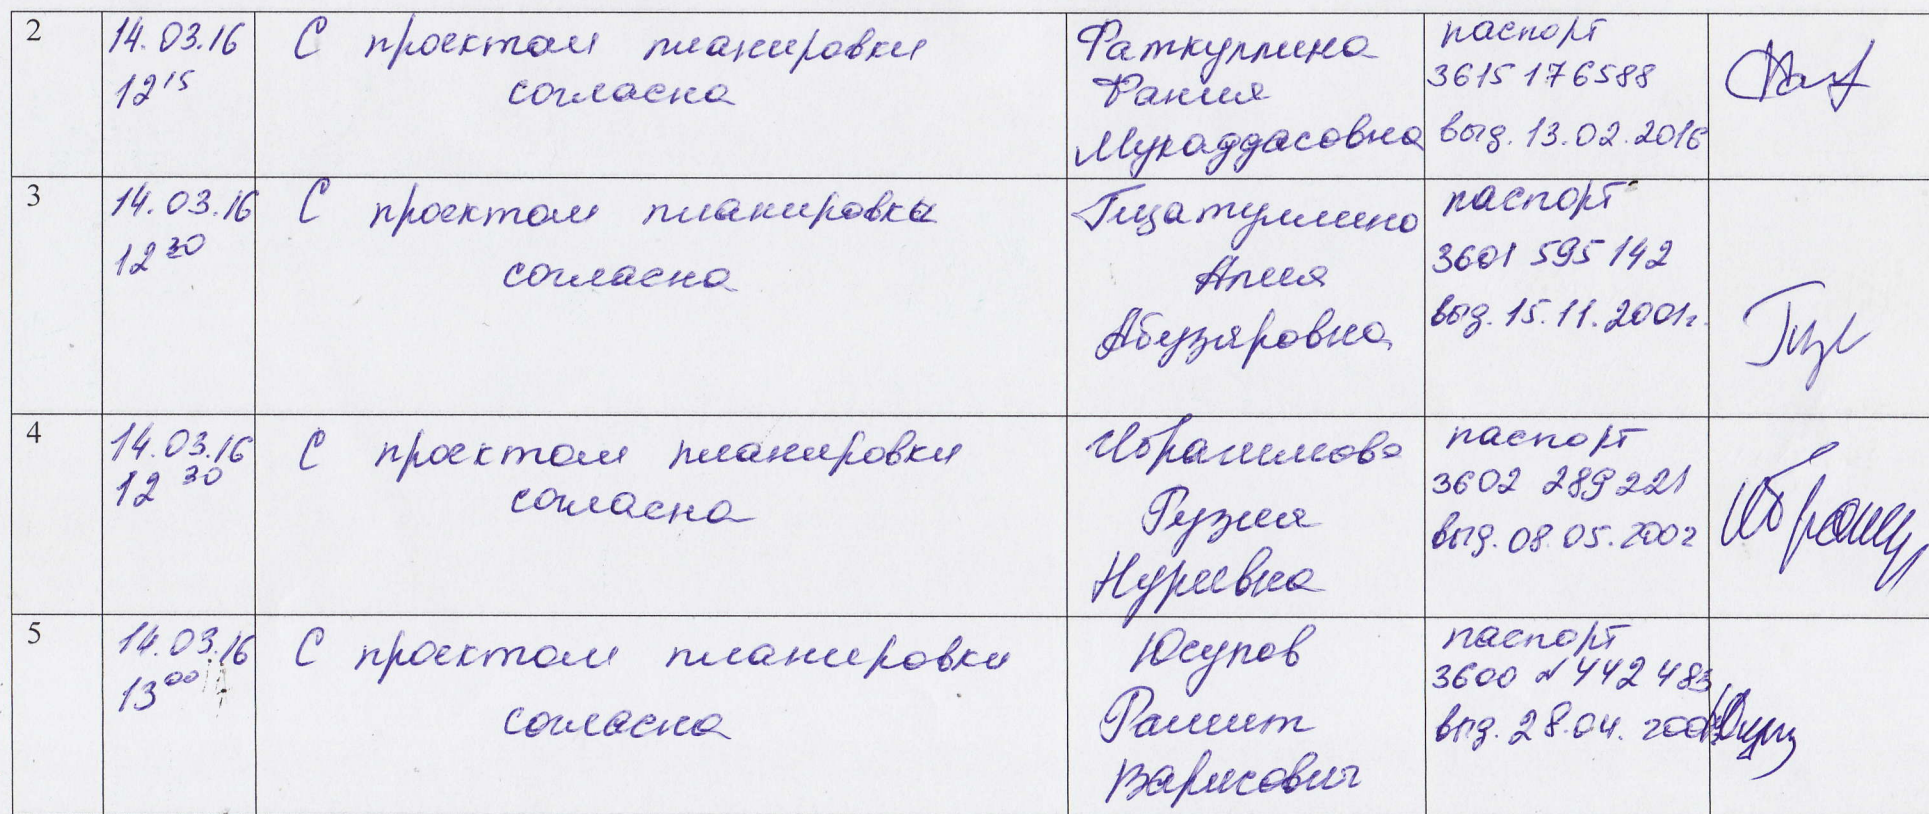 2
14.03.16
12 15
С проектом планировки
согласна
Фаткуллина
Фания
Мукаддасовна
паспорт
3615 176588
выд. 13.02.2016
3
14.03.16
12 20
С проектом планировки
согласна
Гизатуллина
Алия
Абузяровна
паспорт
3601 595 142
выд. 15.11.2001г.
4
14.03.16
12 30
С проектом планировки
согласна
Ибрагимова
Рузия
Нуриевна
паспорт
3602 289221
выд. 08.05.2002
5
14.03.16
13 00
С проектом планировки
согласна
Юсупов
Рашит
Варисович
паспорт
3600 № 442 483
выд. 28.04.